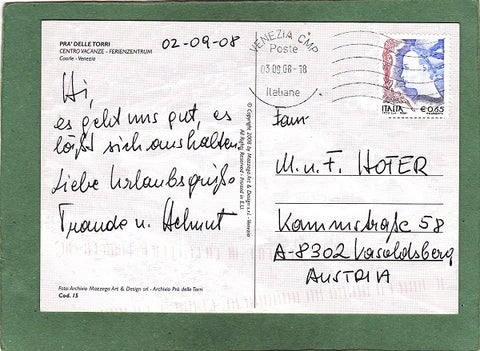 PRA' DELLE TORRI
CENTRO VACANZE - FERIENZENTRUM
Caorle - Venezia
02-09-08
Hi,
es geht uns gut, es
läßt sich aushalten.
Liebe Urlaubsgrüße
Traude u. Helmut
Foto: Archivio Mazzega Art & Design srl - Archivio Prà delle Torri
Cod. 15
© Copyright 2008 by Mazzega Art & Design s.r.l. - Venezia
All Rights Reserved - Printed in E.U.
VENEZIA CMP
Poste
03.09.08-18
Italiane
ITALIA
€0,65
Fam.
M. u. F. HOTER
Kammstraße 58
A-8302 Vasoldsberg
AUSTRIA